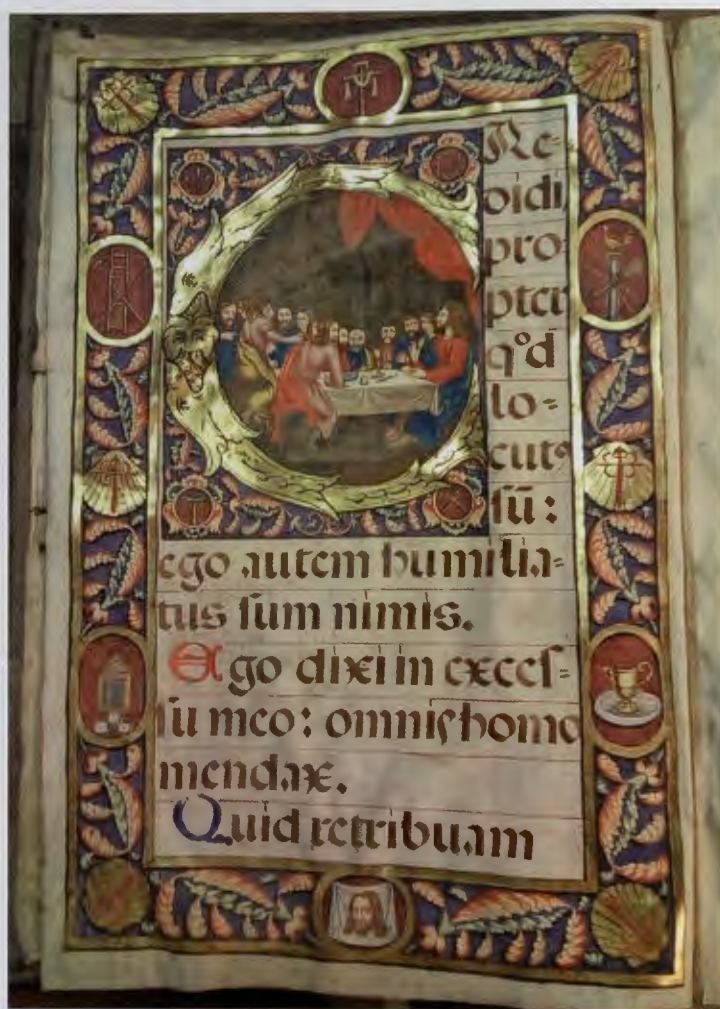 Re-
didi
pro-
pter
qºd
lo=
cutꝰ
ſū :
ego autem humilia=
tus ſum nimis.
Ego dixi in exceſ=
ſu meo : omnis homo
mendax.
Quid retribuam